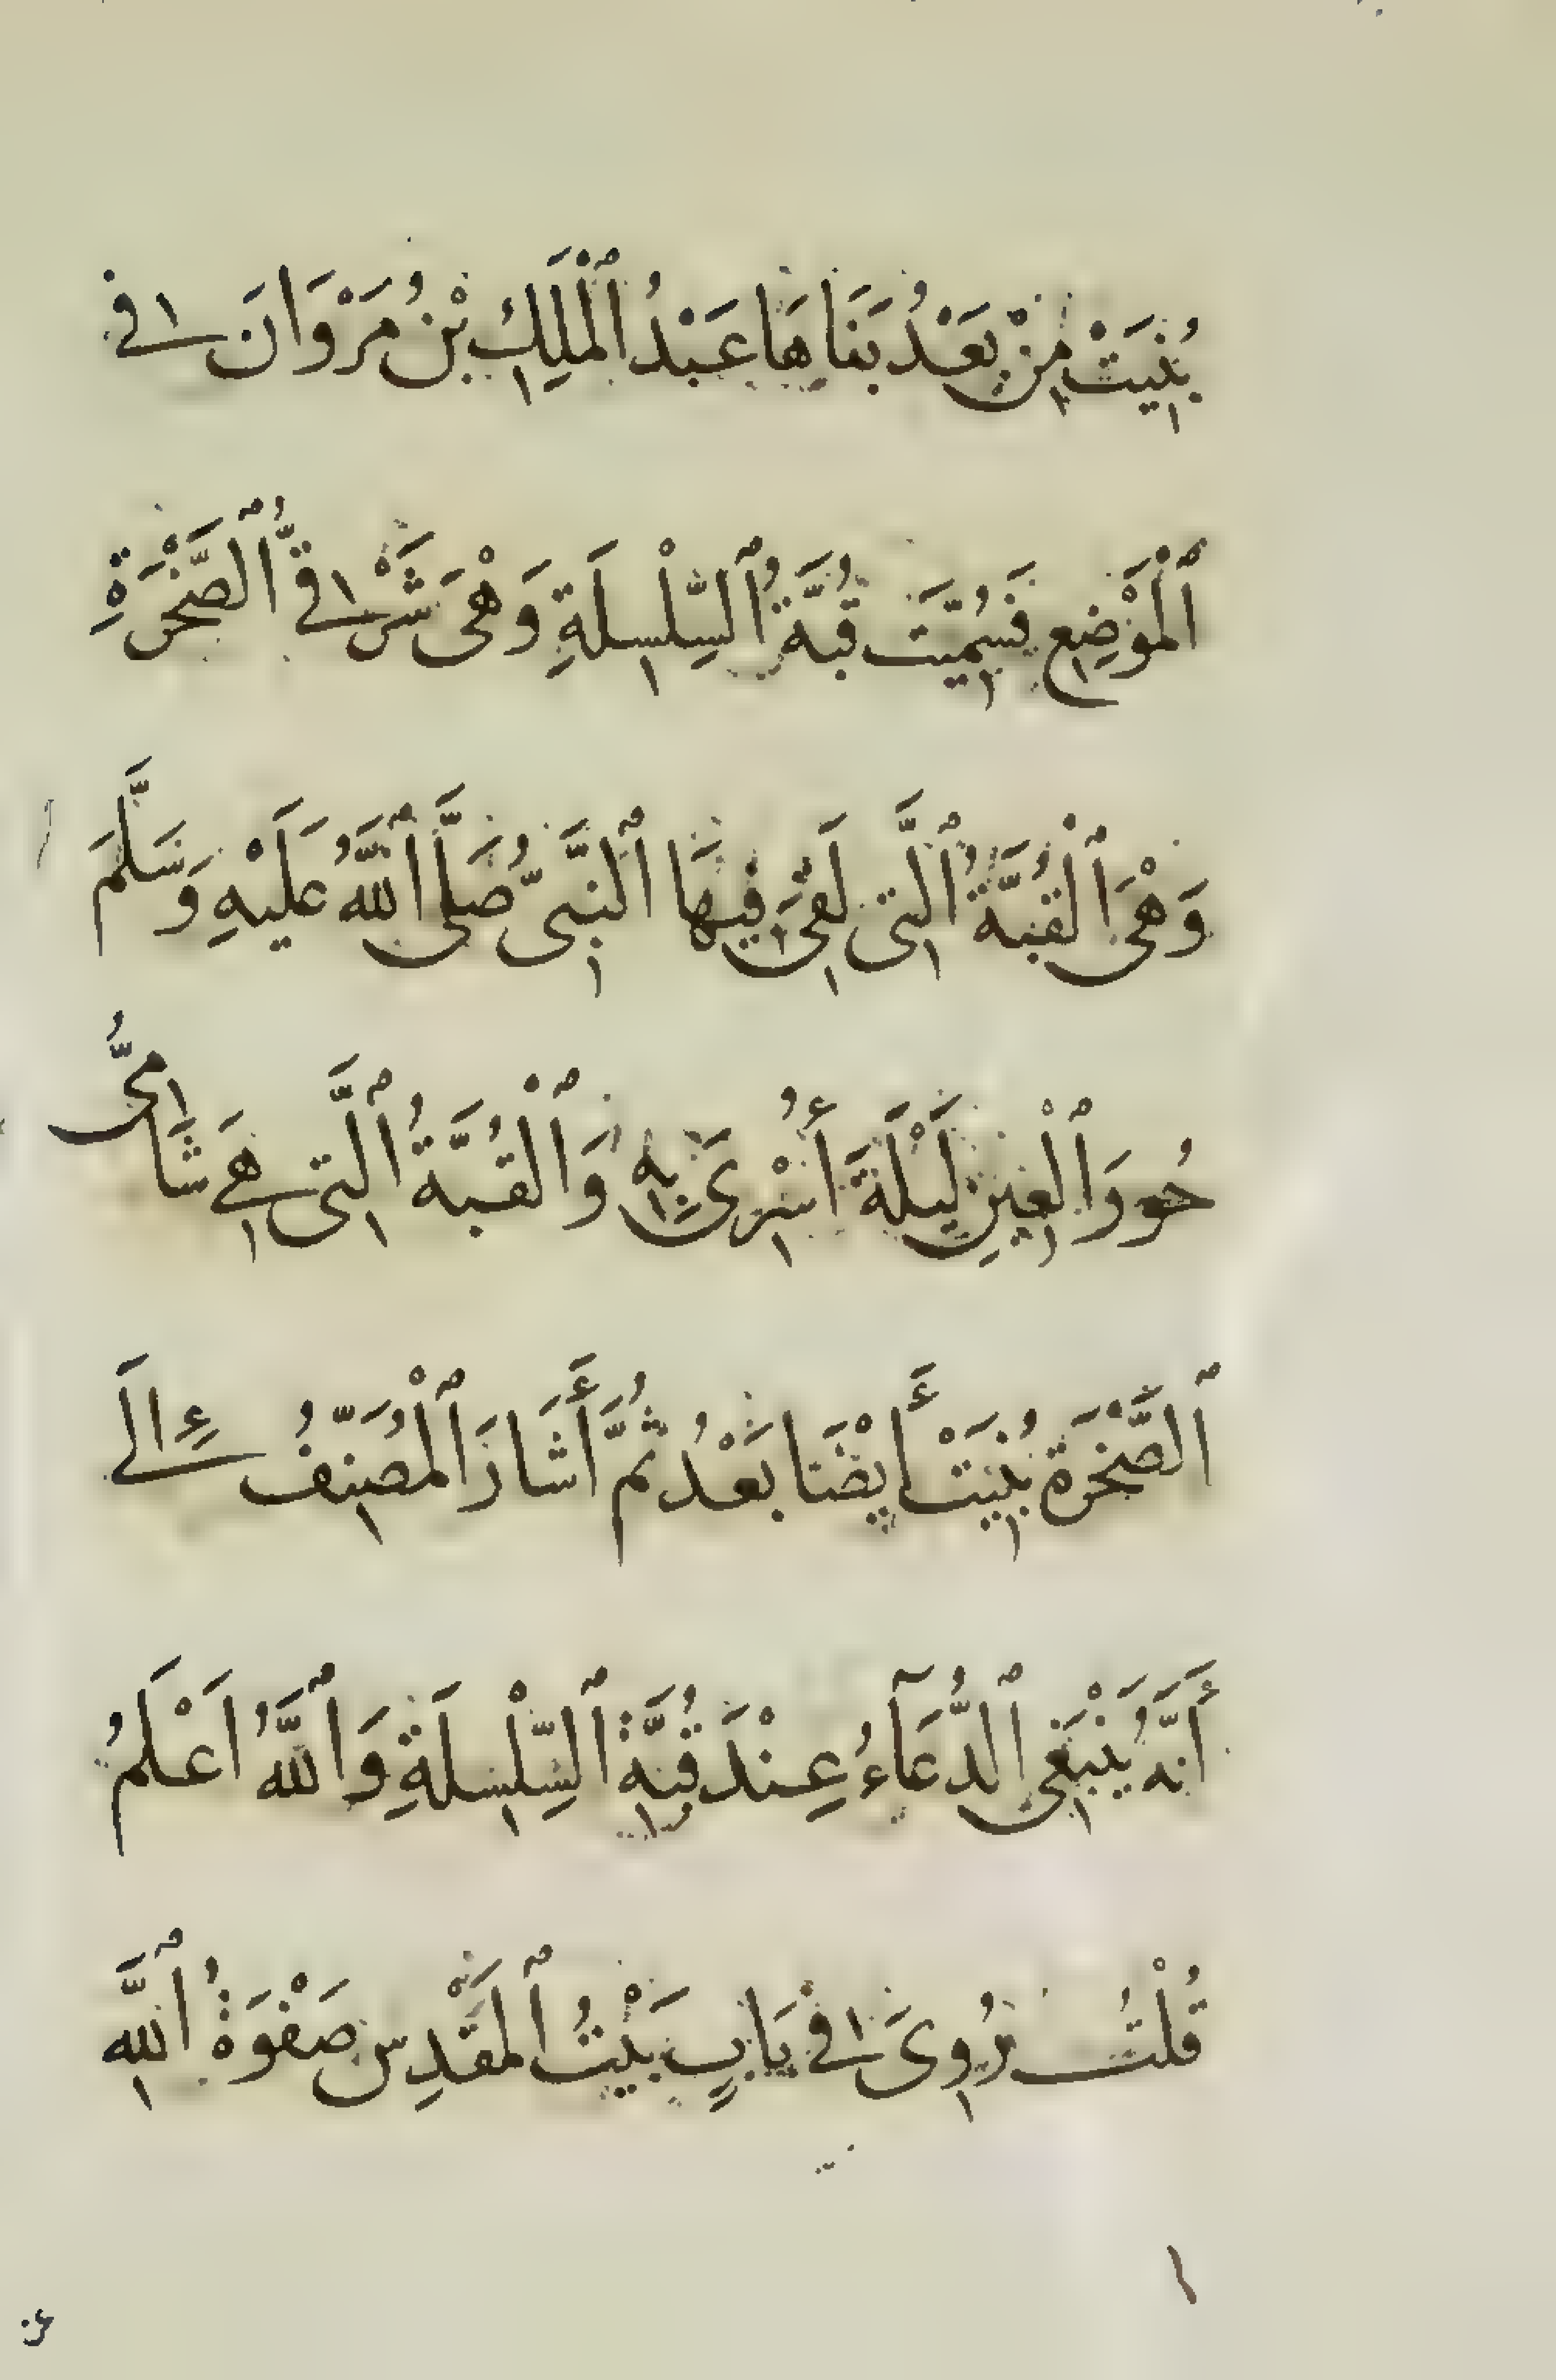 بُنِيَتْ مِنْ بَعْدُ بَنَاهَا عَبْدُ ٱلْمَلِكِ بْنُ مَرْوَانَ فِى
ٱلْمَوْضِعِ فَسُمِّيَت قُبَّةُ ٱلسِّلْسِلَةِ وَهْىَ شَرْقِىُّ ٱلصَّخْرَةِ
وَهْىَ ٱلْقُبَّةُ ٱلَّتِى لَقِىَ فِيهَا ٱلنَّبِىُّ صَلَّى ٱللَّهُ عَلَيْهِ وَسَلَّمَ
حُورَ ٱلْعِينِ لَيْلَةَ أُسْرِىَ بِهِ وَٱلْقُبَّةُ ٱلَّتِى هِىَ شَامِىُّ
ٱلصَّخْرَةِ بُنِيَتْ أَيْضَا بَعْدُ ثُمَّ أَشَارَ ٱلْمُصَنِّفُ إِلَى
أَنَّهُ يَنْبَغِى ٱلدُّعَآءُ عِنْدَ قُبَّةِ ٱلسِّلْسِلَةِ وَٱللَّهُ اَعْلَمُ
قُلْتُ رُوِىَ فِى بَابِ بَيْتُ ٱلمَقْدِسِ صَفْوَةُ ٱللَّهِ
عن